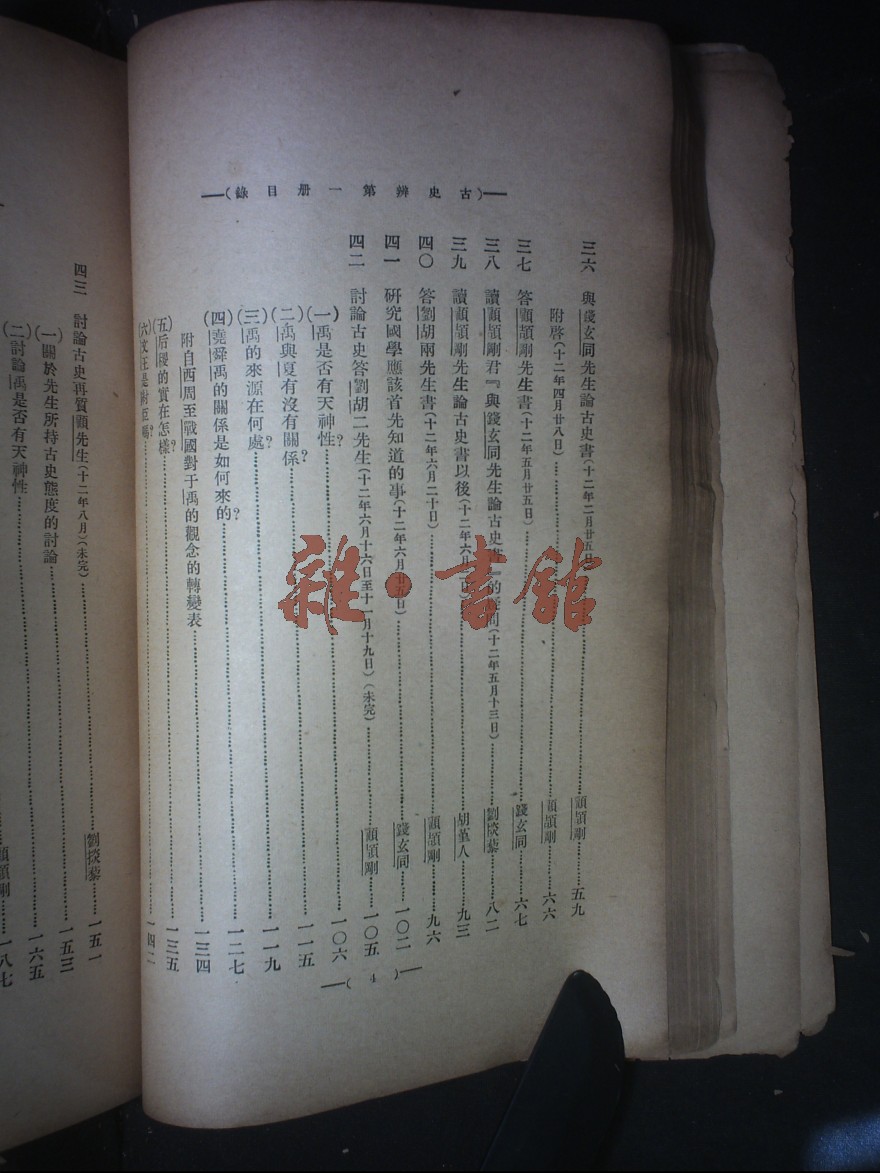 古史辨第一册目錄
三六　與錢玄同先生論古史書(十二年二月廿五日)……顧頡剛……五九
附啓(十二年四月廿八日)……顧頡剛……六六
三七　答顧頡剛先生書(十二年五月廿五日)……錢玄同……六七
三八　讀顧頡剛君『與錢玄同先生論古史書』的疑問(十二年五月十三日)……劉掞藜……八二
三九　讀顧頡剛先生論古史書以後(十二年六月……胡堇人……九三
四〇　答劉胡兩先生書(十二年六月二十日)……顧頡剛……九六
四一　研究國學應該首先知道的事(十二年六月廿五日)……錢玄同……一〇二
四二　討論古史答劉胡二先生(十二年六月十六日至十一月十九日)(未完)……顧頡剛……一〇五
(一)禹是否有天神性?……一〇六
(二)禹與夏有沒有關係?……一一五
(三)禹的來源在何處?……一一九
(四)堯舜禹的關係是如何來的?……一二七
附自西周至戰國對于禹的觀念的轉變表……一三四
(五)后稷的實在怎樣?……一三五
(六)文王是紂臣嗎?……一四二
(4)
四三　討論古史再質顧先生(十二年八月)(未完)……劉掞藜……一五一
(一)關於先生所持古史態度的討論……一五三
(二)討論禹是否有天神性……一六五
顧頡剛……一八七
雜·書館